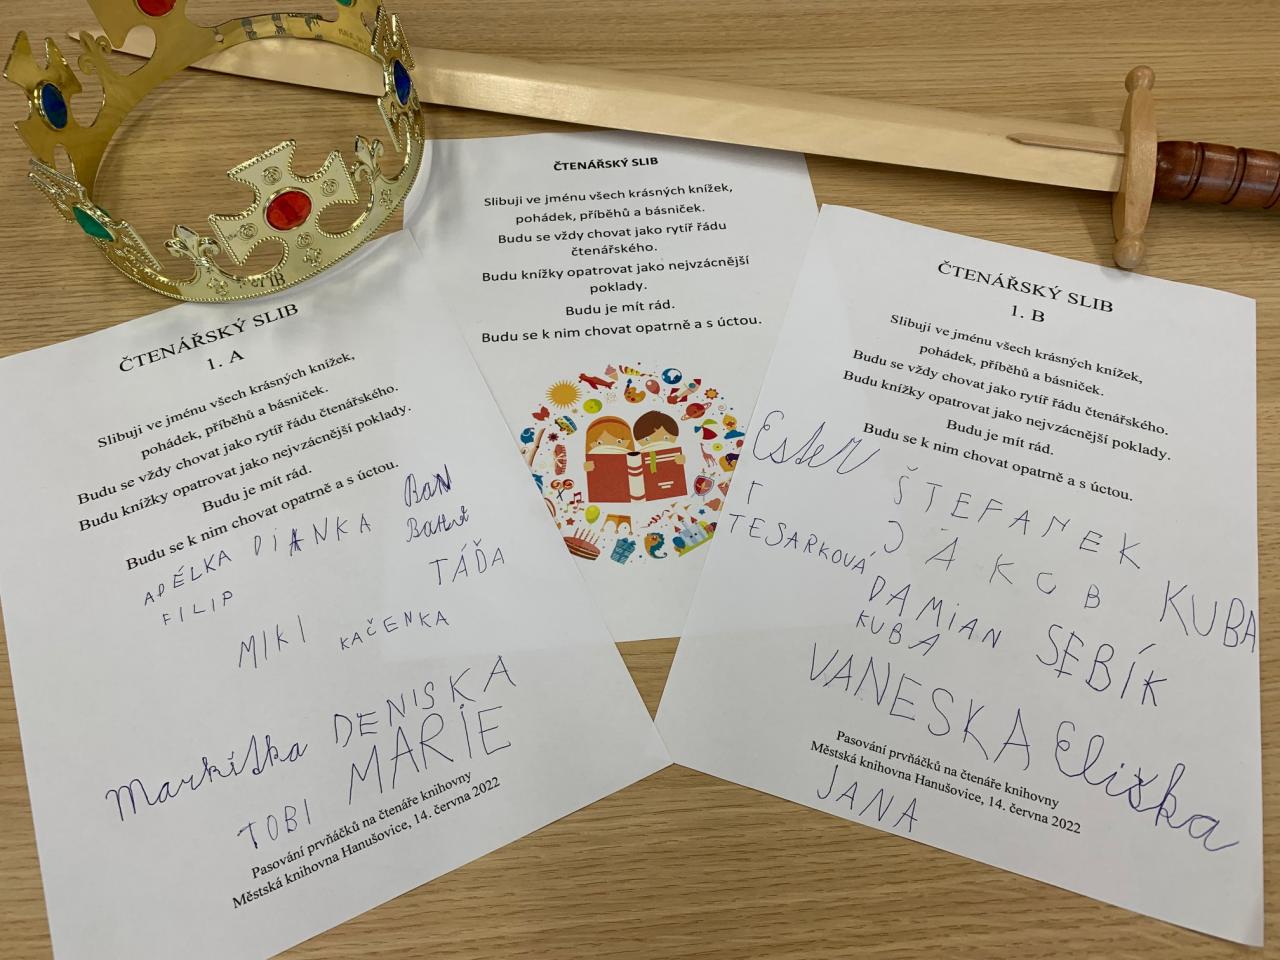 ČTENÁŘSKÝ SLIB
Slibuji ve jménu všech krásných knížek,
pohádek, příběhů a básniček.
Budu se vždy chovat jako rytíř řádu
čtenářského.
Budu knížky opatrovat jako nejvzácnější
poklady.
Budu je mít rád.
Budu se k nim chovat opatrně a s úctou.
ČTENÁŘSKÝ SLIB
1. A
Slibuji ve jménu všech krásných knížek,
pohádek, příběhů a básniček.
Budu se vždy chovat jako rytíř řádu čtenářského.
Budu knížky opatrovat jako nejvzácnější poklady.
Budu je mít rád.
Budu se k nim chovat opatrně a s úctou.
ADÉLKA DIANKA
FILIP TÁĎA
MIKI KAČENKA
Markétka DENISKA
TOBI MARIE
Pasování prvňáčků na čtenáře knihovny
Městská knihovna Hanušovice, 14. června 2022
ČTENÁŘSKÝ SLIB
1. B
Slibuji ve jménu všech krásných knížek,
pohádek, příběhů a básniček.
Budu se vždy chovat jako rytíř řádu čtenářského.
Budu knížky opatrovat jako nejvzácnější poklady.
Budu je mít rád.
Budu se k nim chovat opatrně a s úctou.
Ester ŠTEFANEK
T JÁKOB KUBA
TESARKOVÁ DAMIAN SEBÍK
KUBA
VANESKA Eliška
Pasování prvňáčků na čtenáře knihovny
Městská knihovna Hanušovice, 14. června 2022
JANA